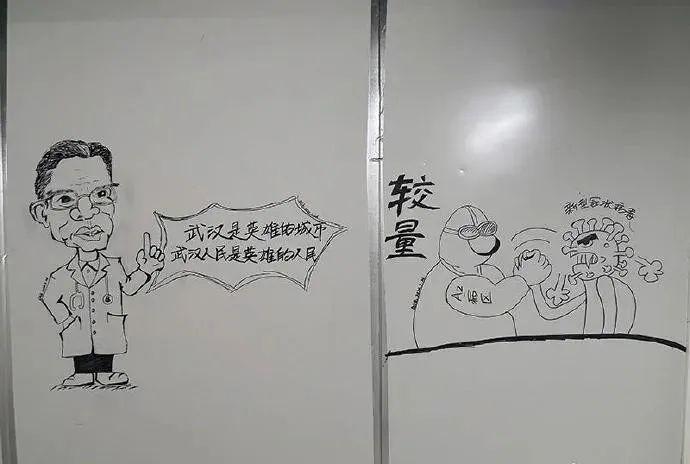 武汉是英雄的城市
武汉人民是英雄的人民
较量
新型冠状病毒
A2
南区